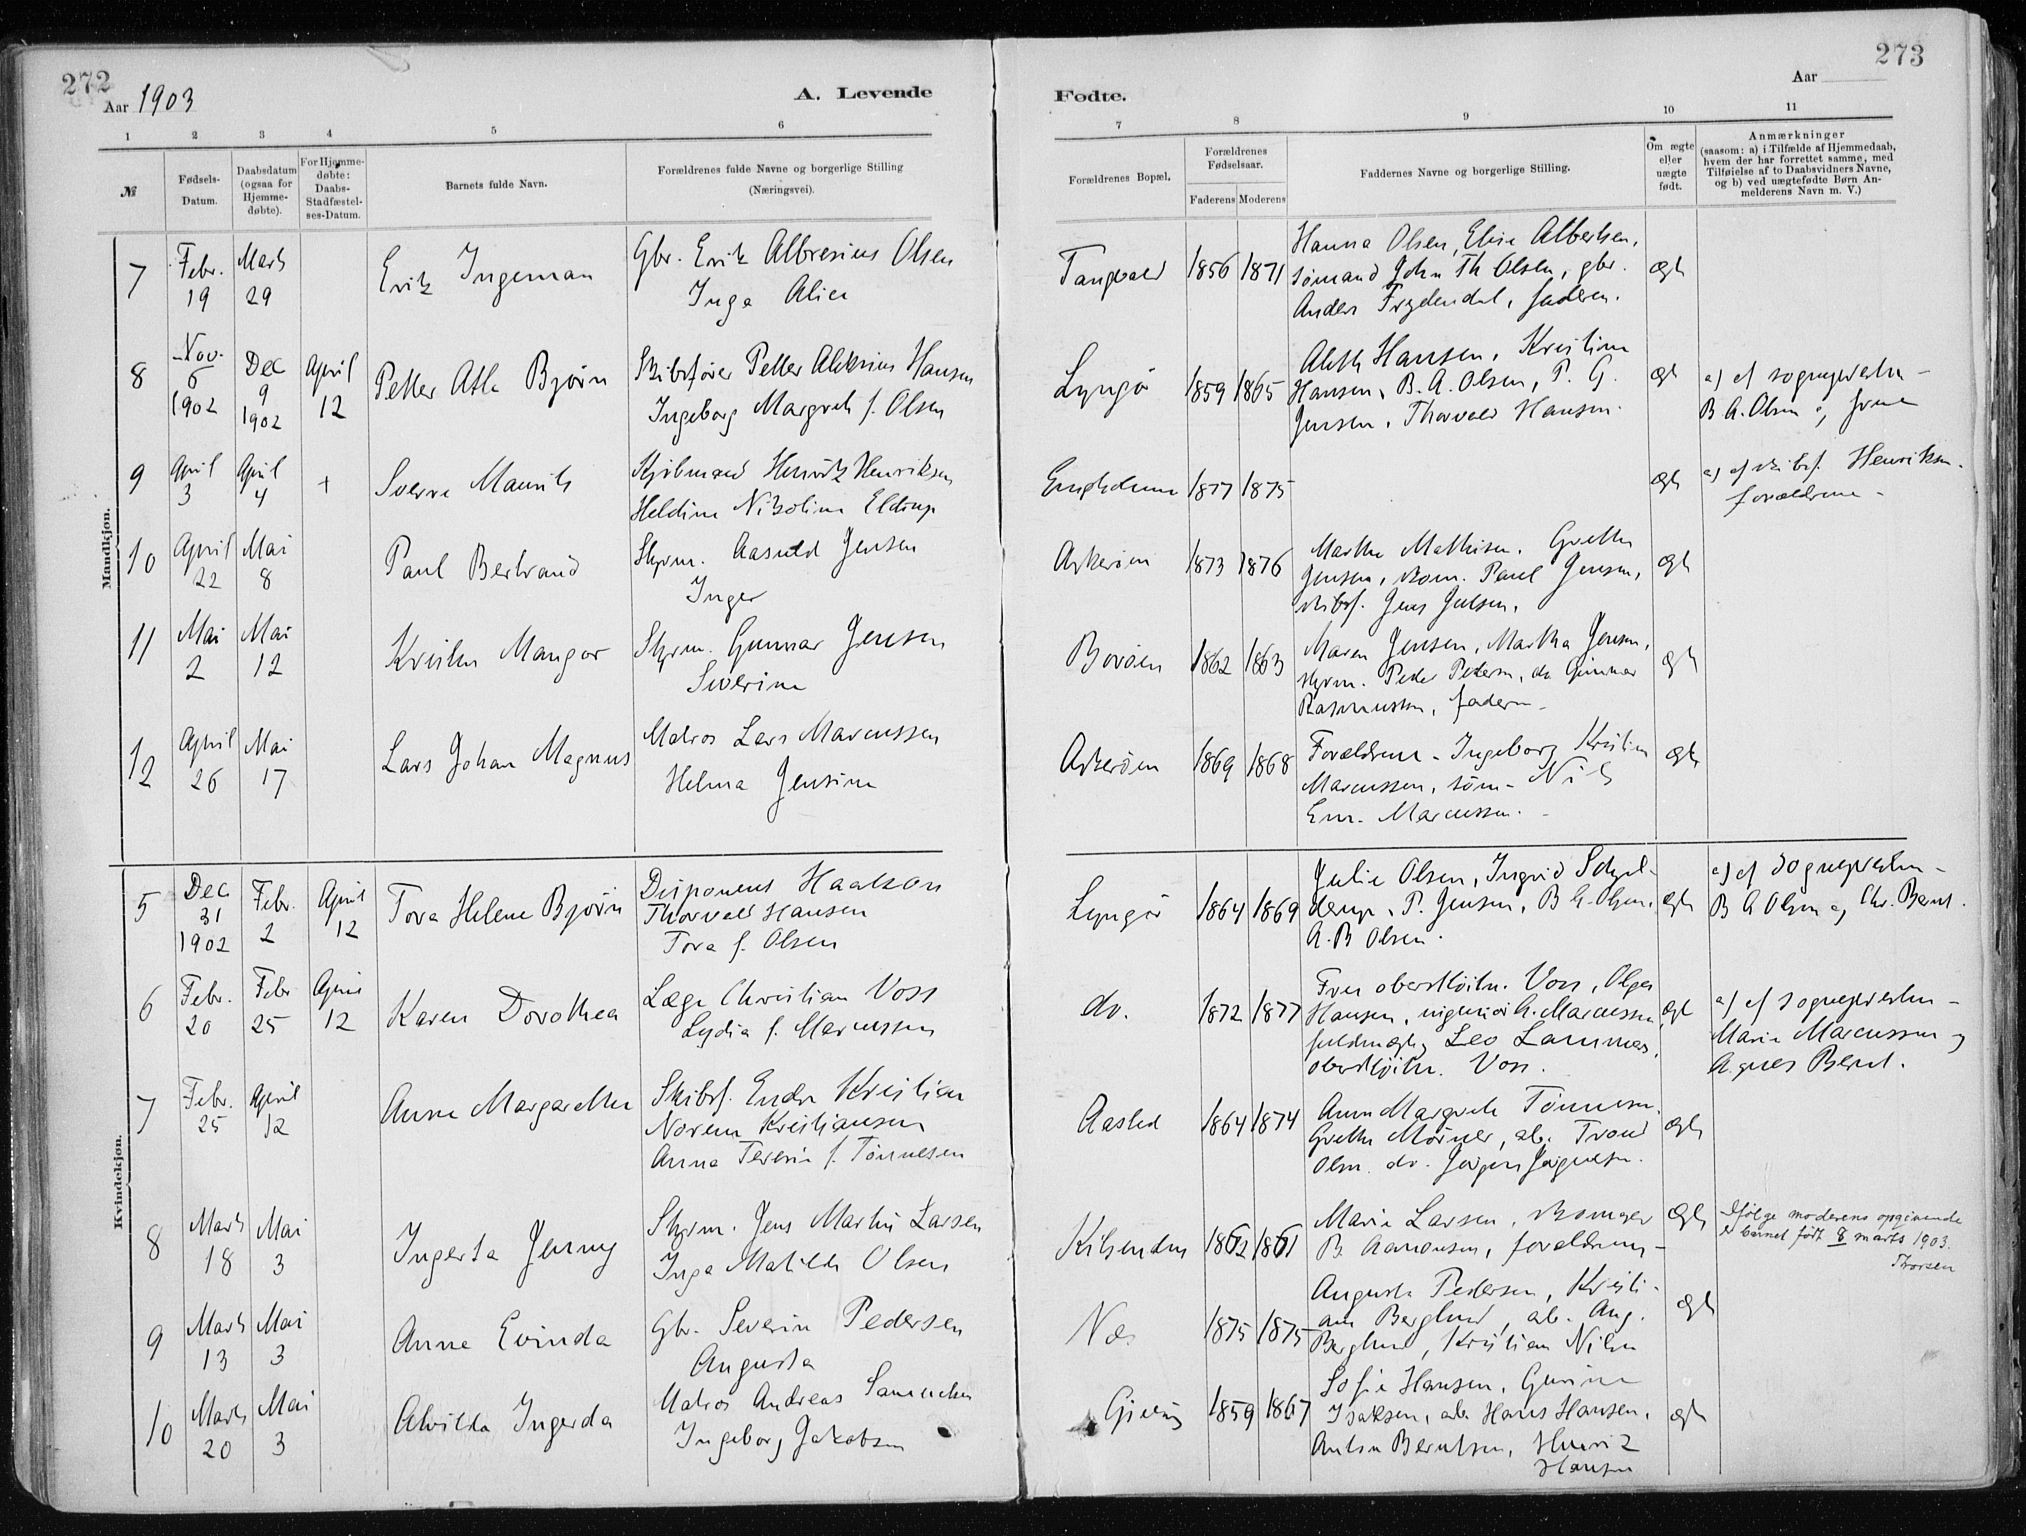 272
Aar 1903
A. Levende
1 2 3 4 5 6
№
Fødsels-
Datum.
Daabsdatum
(ogsaa for
Hjemme-
døbte).
For Hjemme-
døbte:
Daabs-
Stadfæstel-
ses-Datum.
Barnets fulde Navn.
Forældrenes fulde Navne og borgerlige Stilling
(Næringsvei).
Mandkjøn.
7 Febr. 19 Marts 29 Erik Ingeman
Gbr. Erik Albresius Olsen
Inga
8 Nov. 6 1902 Dec 9 1902 April 12 Petter Atle Bjørn
Skibsfører Petter Hansen
Ingeborg Margreth f. Olsen
9 April 3 April 4 + Sverre Maurits
Kjøbmand Henrik Henriksen
Heldine Nikoline Eldrup
10 April 22 Mai 8 Paul Bertrand
Styrm. Jensen
Inger
11 Mai 2 Mai 12 Kristen Mangor
Styrm. Gunnar Jensen
Severine
12 April 26 Mai 17 Lars Johan Magnus
Matros Lars Marcussen
Helma Jensine
Kvindekjøn.
5 Dec 31 1902 Febr. 2 April 12 Tova Helene Bjørn
Disponent Haakon
Thorvald Hansen
Tova f. Olsen
6 Febr. 20 Febr 25 April 12 Karen Dorothea
Læge Christian Voss
Lydia f. Marcussen
7 Febr. 25 April 12 Anne Margarethe
Skibsf. Endre Kristian
Norem Kristiansen
Anna Teresie f. Tønnesen
8 Marts 18 Mai 3 Ingerta Jenny
Styrm. Jens Martin Larsen
Inga Matilde Olsen
9 Marts 13 Mai 3 Anne Evinda
Gbr. Severin Pedersen
Augusta
10 Marts 20 Mai 3 Alvilda Ingerda
Matros Andreas Samuelsen
Ingeborg Jakobsen
273
Aar
Fødte.
7 8 9 10 11
Forældrenes Bopæl.
Forældrenes
Fødselsaar.
Faderens Moderens
Faddernes Navne og borgerlige Stilling
Om ægte
eller
uægte
født.
Anmærkninger
(saasom: a) i Tilfælde af Hjemmedaab,
hvem der har forrettet samme, med
Tilføielse af to Daabsvidners Navne,
og b) ved uægtefødte Børn An-
melderens Navn m. V.)
Tangvald 1856 1871
Hanna Olsen, Elise Albertsen,
sømand John Th Olsen, gbr.
Anders Frydendal, faderen.
ægte
Lyngør 1859 1865
Aleth Hansen, Kristine
Hansen, B. A. Olsen, P. G.
Jensen, Thorvald Hansen.
ægte
a) af sognepresten -
B A. Olsen og frue
1877 1875
ægte
a) af skibsf. Henriksen.
forældrene -
Askerøen 1873 1876
Marthe Mathisen, Grethe
Jensen, skom. Paul Jensen,
skibsf. Jens Jensen.
ægte
Borøen 1862 1863
Maren Jensen, Martha Jensen,
styrm. Peder Pedersen, do Gunnar
Rasmussen, faderen -
ægte
Askerøen 1869 1868
Forældrene - Ingeborg Kristine
Marcussen, søm. Nils
Em. Marcussen. -
ægte
Lyngør 1864 1869
Julie Olsen, Ingrid Schjel-
derup, P. Jensen, B A. Olsen,
A. B Olsen.
ægte
a) af sognepresten -
B A Olsen og Chr. Bernt.
do. 1872 1877
Fru oberstløitn. Voss, Olga
Hansen, ingeniør A. Marcussen,
fuldmægtig Leo Lammers,
oberstløitn. Voss.
ægte
a) af sognepresten -
Marie Marcussen og
Agnes Bernt.
Aasted 1864 1874
Anna Margrete Tønnesen.
Grethe Mørner, arb. Trond
Olsen. do. Jørgen Jørgensen.
ægte
1862 1861
Marie Larsen, skomager
B. Aanonsen, forældrene -
ægte
Ifølge moderens opgivende
er barnet født 8 marts 1903.
Thorsen
Næs 1875 1875
Augusta Pedersen, Kristi-
ane Berglund, arb. Aug.
Berglund, Kristian Nilsen
ægte
Gjeving 1859 1867
Sofie Hansen, Gurine
Isaksen, arb. Hans Hansen,
Anton Berntsen, Henrik
Hansen
ægte